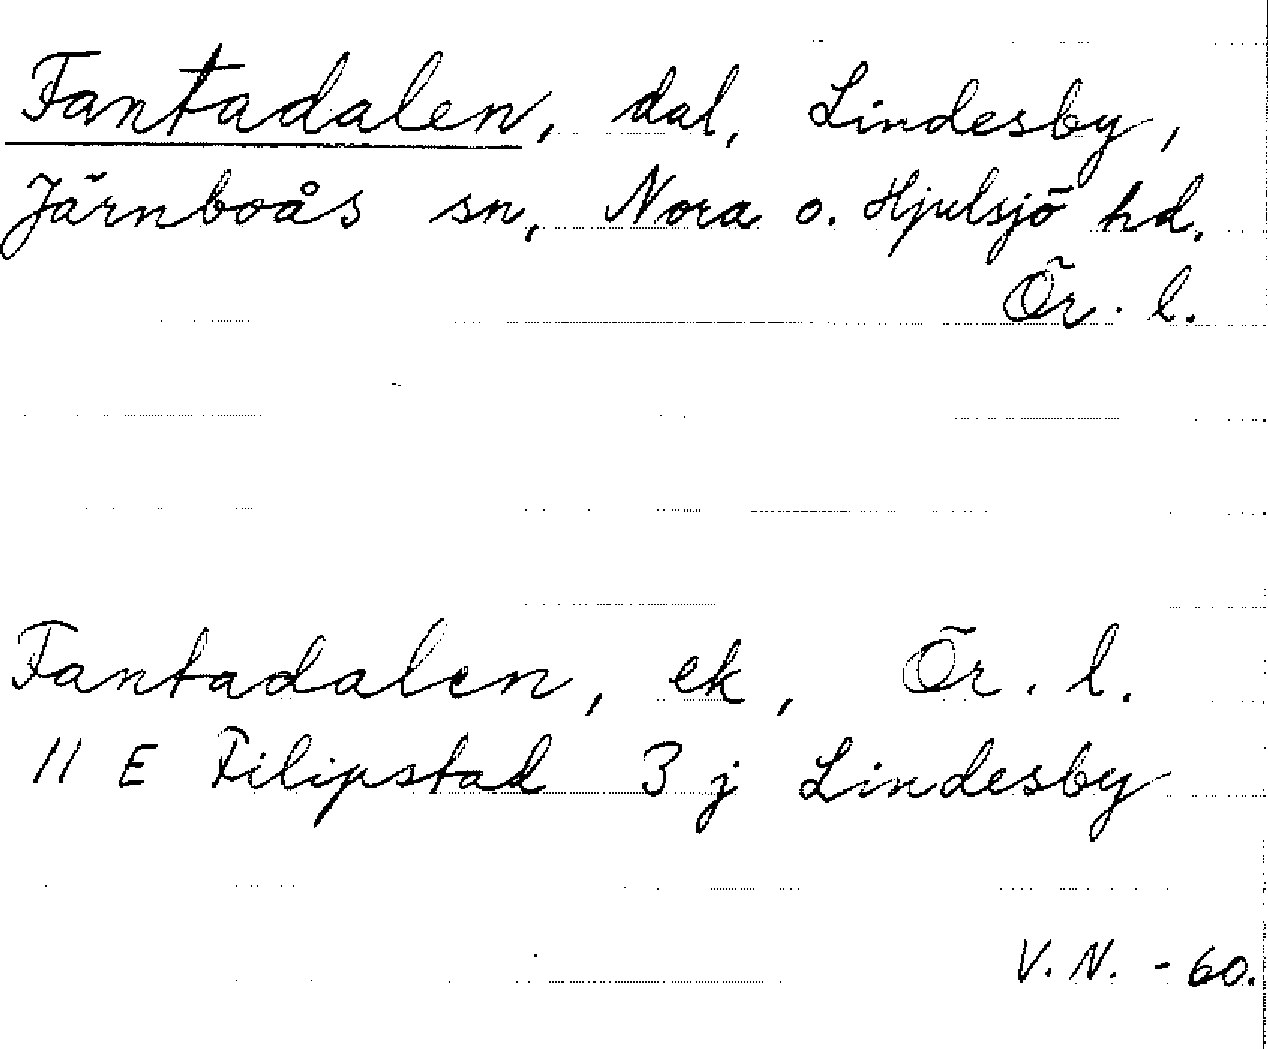 Fantadalen, dal, Lindesby,
Järnboås sn, Nora o. Hjulsjö hd.
Ör. l.
Fantadalen, ek, Ör. l.
11 E Filipstad 3 j Lindesby
V. N. - 60.